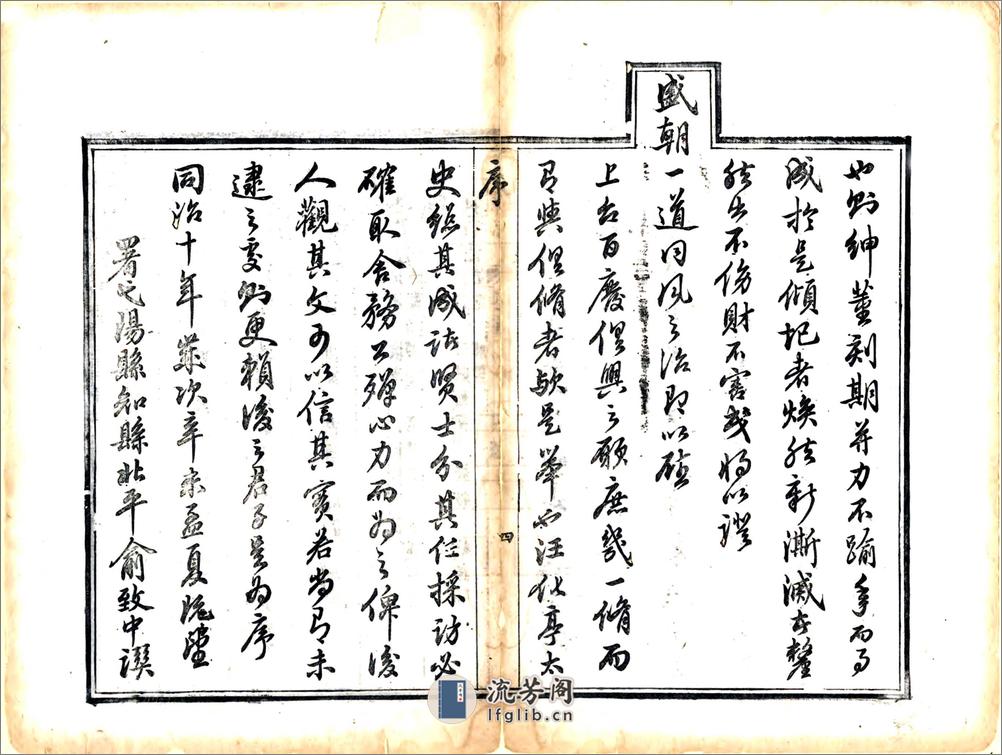 也則紳董刻期並力不踰年而事
成於是傾圮者煥然新澌滅者釐
然出不傷財不害民將以證
盛朝一道同風之治即以磋
上台百廢俱興之願庶幾一脩而
有與俱脩者歟是舉也汪化亭太
序
四
史總其成諸賢士分其任採訪必
確取舍務公殫心力而為之俾後
人觀其文可以信其實若尚有未
逮之處則更賴後之君子是為序
同治十年歲次辛未孟夏既望
署巴陽縣知縣北平俞致中譔
流芳阁
lfglib.cn